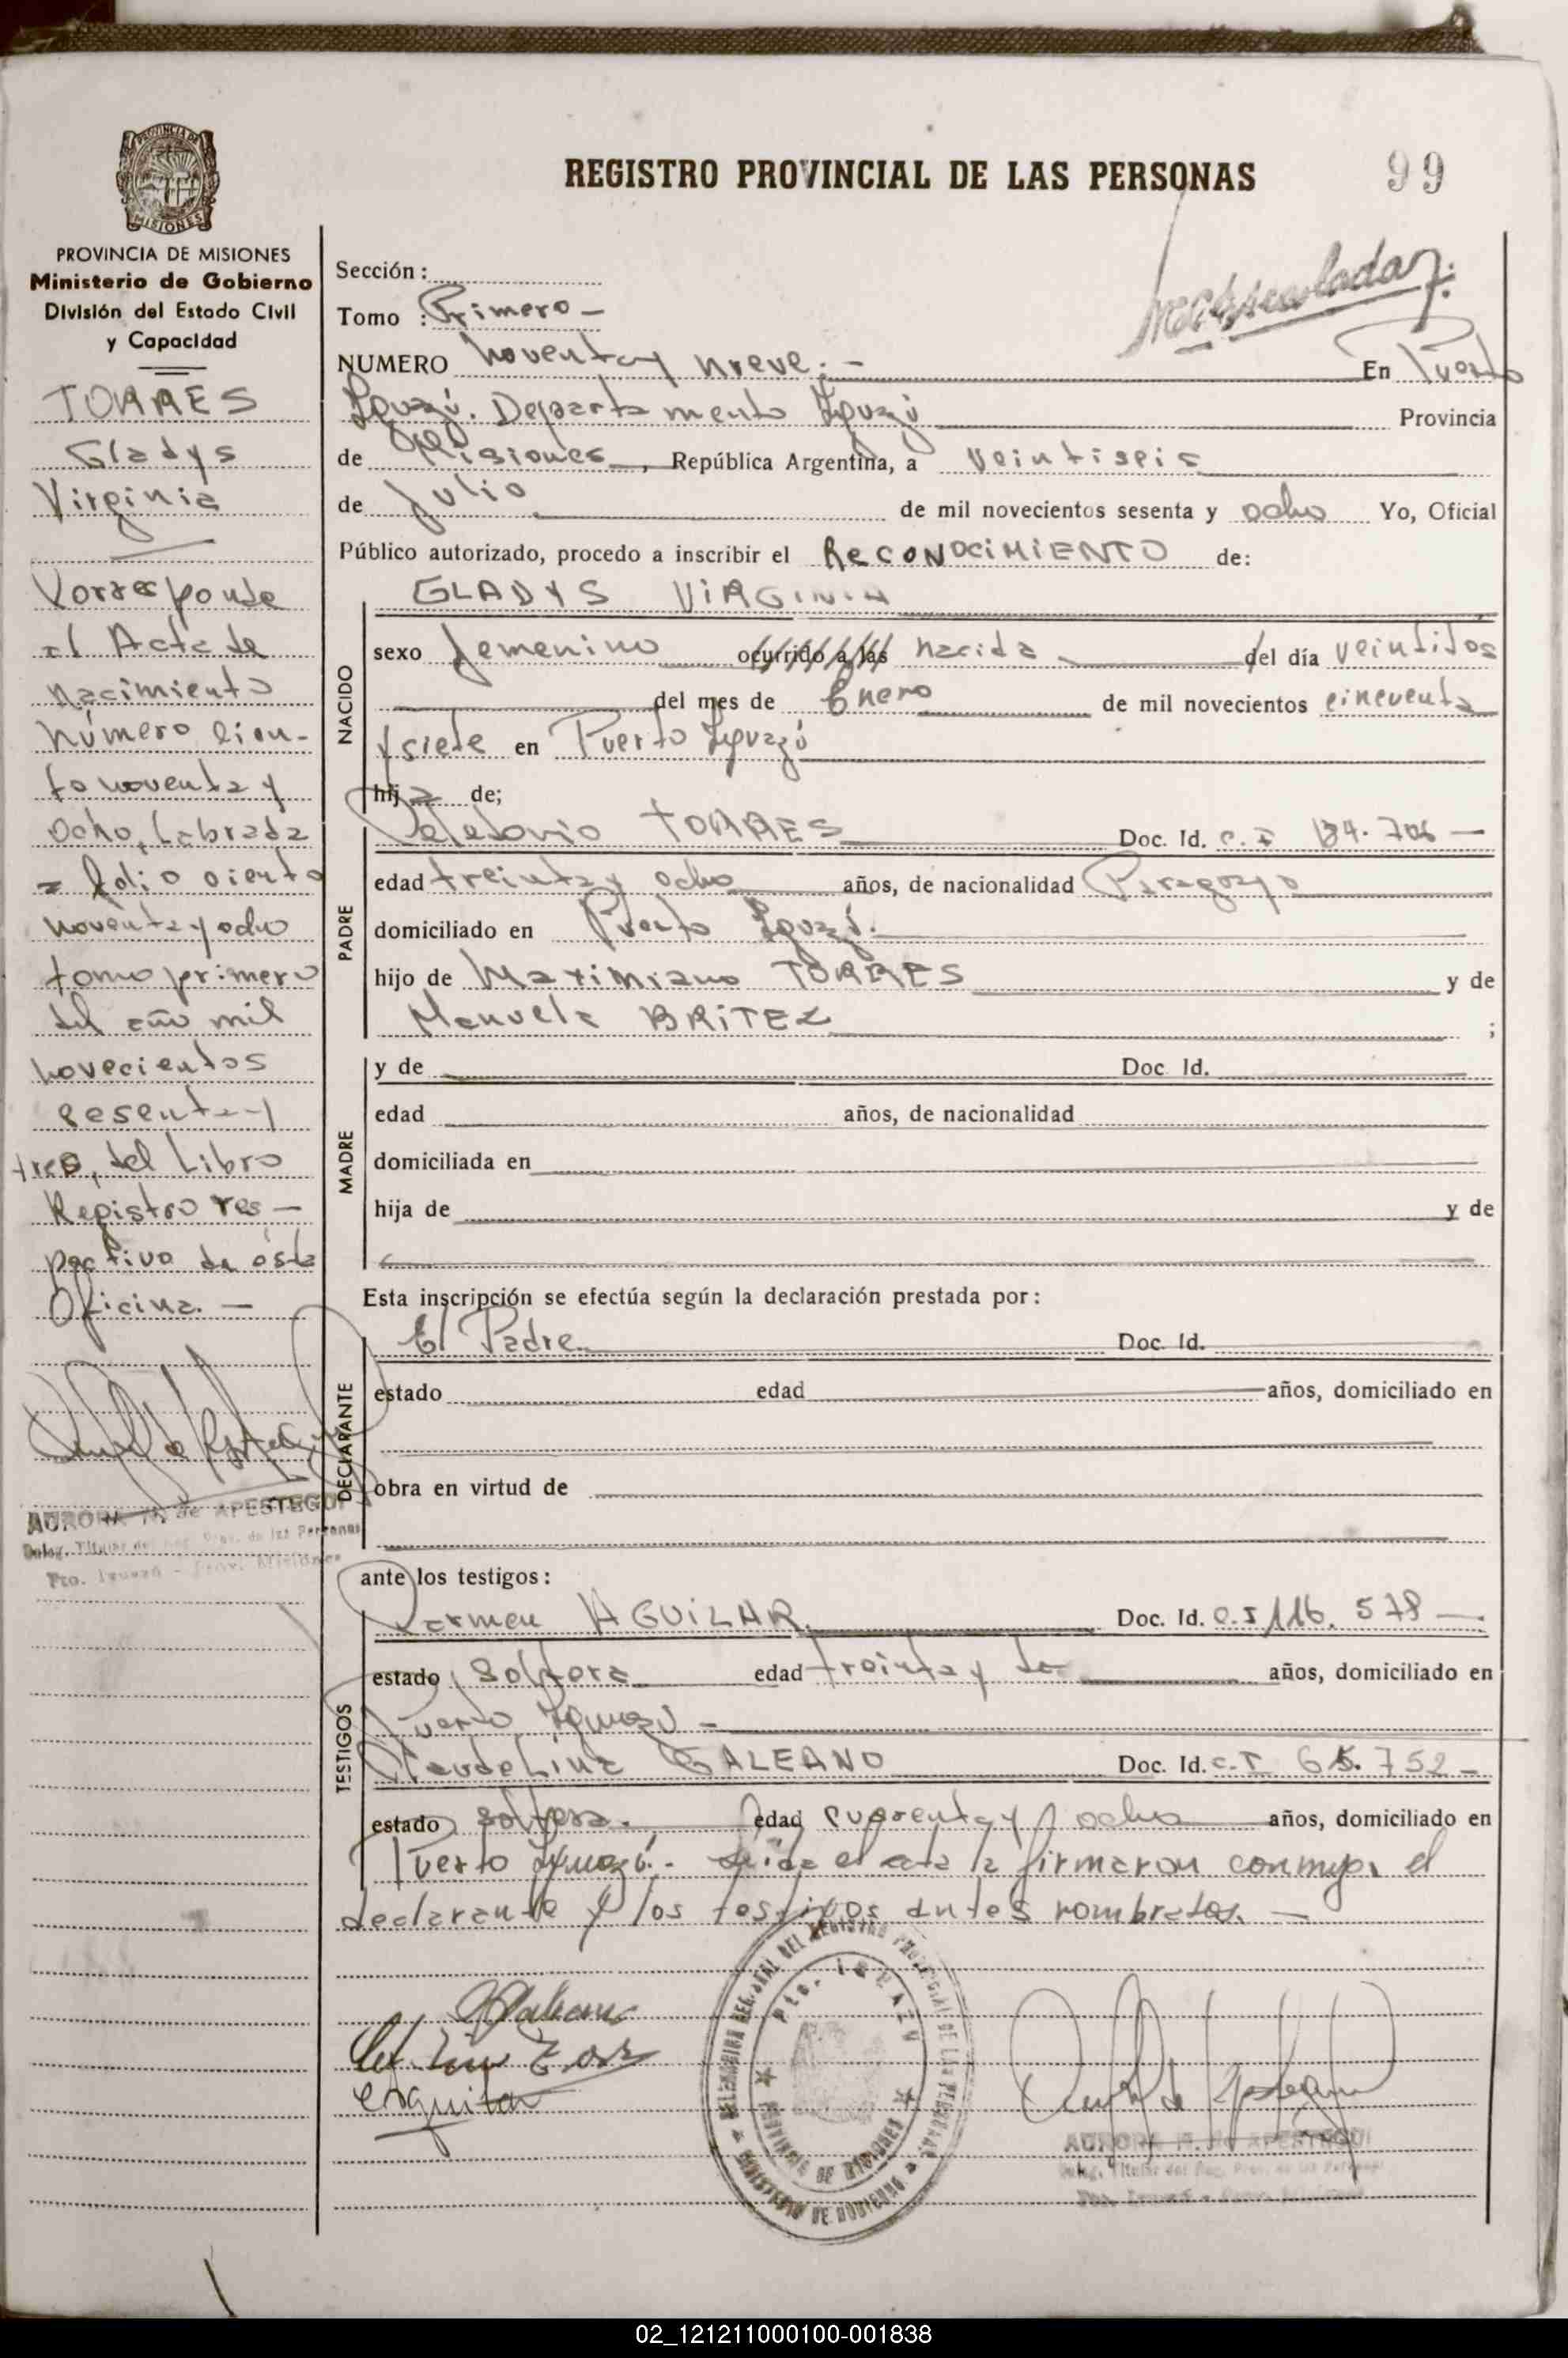 REGISTRO PROVINCIAL DE LAS PERSONAS
99
PROVINCIA DE MISIONES
Ministerio de Gobierno
División del Estado Civil
y Capacidad
TORRES
Gladys
Virginia
Corresponde
al Acta de
nacimiento
número cien-
to noventa y
ocho, Labrada
a folio ciento
noventa y ocho
tomo primero
del año mil
novecientos
sesenta y
tres, del Libro
Registro res-
pectivo de ésta
Oficina. —
AURORA M. de APESTEGUI
Deleg. Titular del Reg. Prov. de las Personas
Pto. Iguazú - Prov. Misiones
Sección :
Tomo : Primero —
NUMERO noventa y nueve. — En Puerto
Iguazú. Departamento Iguazú Provincia
de Misiones, República Argentina, a veintiseis
de Julio de mil novecientos sesenta y ocho Yo, Oficial
Público autorizado, procedo a inscribir el RECONOCIMIENTO de:
NACIDO
GLADYS VIRGINIA
sexo femenino ocurrido a las nacida del día veintidos
del mes de Enero de mil novecientos cincuenta
y siete en Puerto Iguazú
hija de;
PADRE
Celedonio TORRES Doc. Id. C. I 134.706 —
edad treinta y ocho años, de nacionalidad Paraguayo
domiciliado en Puerto Iguazú.
hijo de Maximiano TORRES y de
Manuela BRITEZ ;
MADRE
y de Doc. Id.
edad años, de nacionalidad
domiciliada en
hija de y de
Esta inscripción se efectúa según la declaración prestada por:
DECLARANTE
El Padre Doc. Id.
estado edad años, domiciliado en
obra en virtud de
ante los testigos:
TESTIGOS
Carmen AGUILAR Doc. Id. C.I 116. 578 —
estado soltera edad treinta y años, domiciliado en
Puerto Iguazú —
Claudelina GALEANO Doc. Id. C.I 65.752 —
estado soltera. edad cuarenta y ocho años, domiciliado en
Puerto Iguazú. - Leída el acta la firmaron conmigo, el
declarante y los testigos antes nombrados. —
DEL REGISTRO PROVINCIAL DE LAS PERSONAS
Pto. IGUAZU
PROVINCIA DE MISIONES
MINISTERIO DE GOBIERNO
AURORA M. de APESTEGUI
Deleg. Titular del Reg. Prov. de las Personas
Pto. Iguazú - Prov. Misiones
02_121211000100-001838